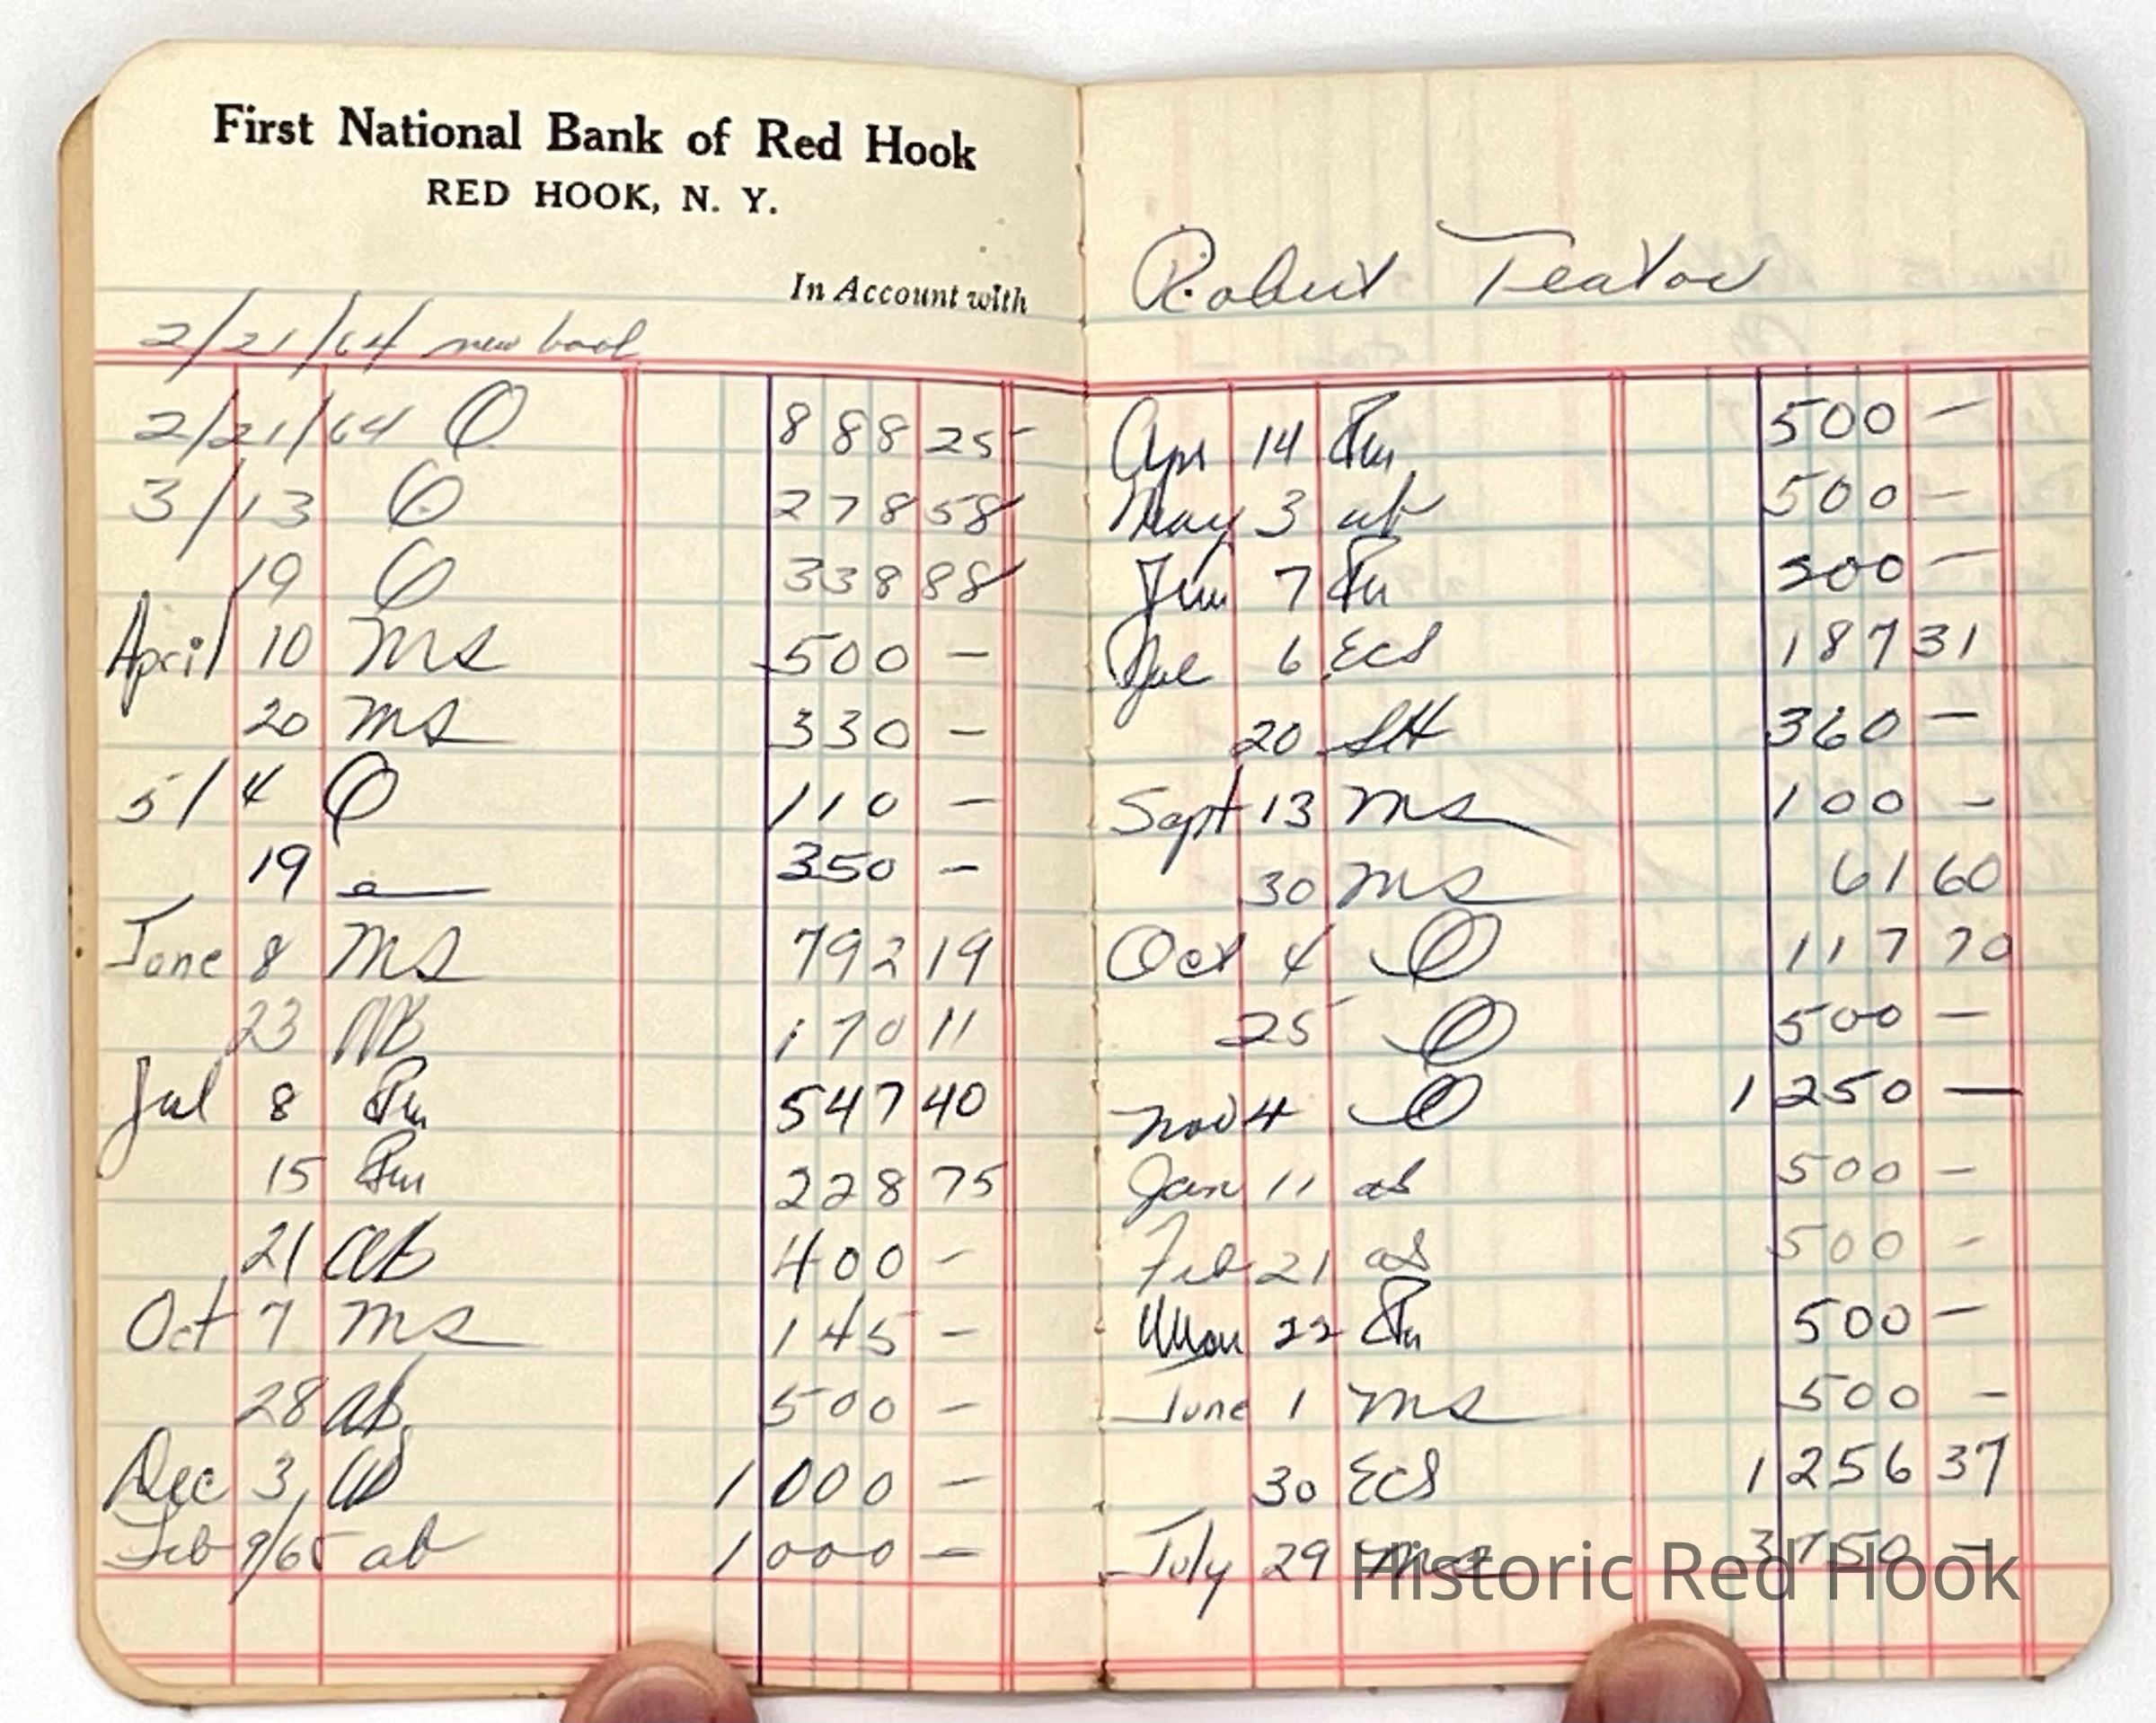 First National Bank of Red Hook
RED HOOK, N. Y.
In Account with
2/21/64 new book
2/21/64 888 25
3/13 278 58
19 338 88
April 10 MS 500 —
20 MS 330 —
5/4 110 —
19 350 —
June 8 MS 792 19
23 170 11
Jul 8 547 40
15 228 75
21 ab 400 -
Oct 7 MS 145 -
28 ab 500 -
Dec 3 1 000 -
Feb 9/65 ab 1 000 -
Robert Teator
Apr 14 500 —
May 3 ab 500 —
Jun 7 500 —
Jul 6 ECS 187 31
20 360 —
Sept 13 MS 100 -
30 MS 61 60
Oct 4 117 70
25 500 —
Nov 4 1 250 —
Jan 11 500 -
Feb 21 500 -
Mar 22 500 —
June 1 MS 500 -
30 ECS 1 256 37
July 29 MS 3 750 -
Historic Red Hook